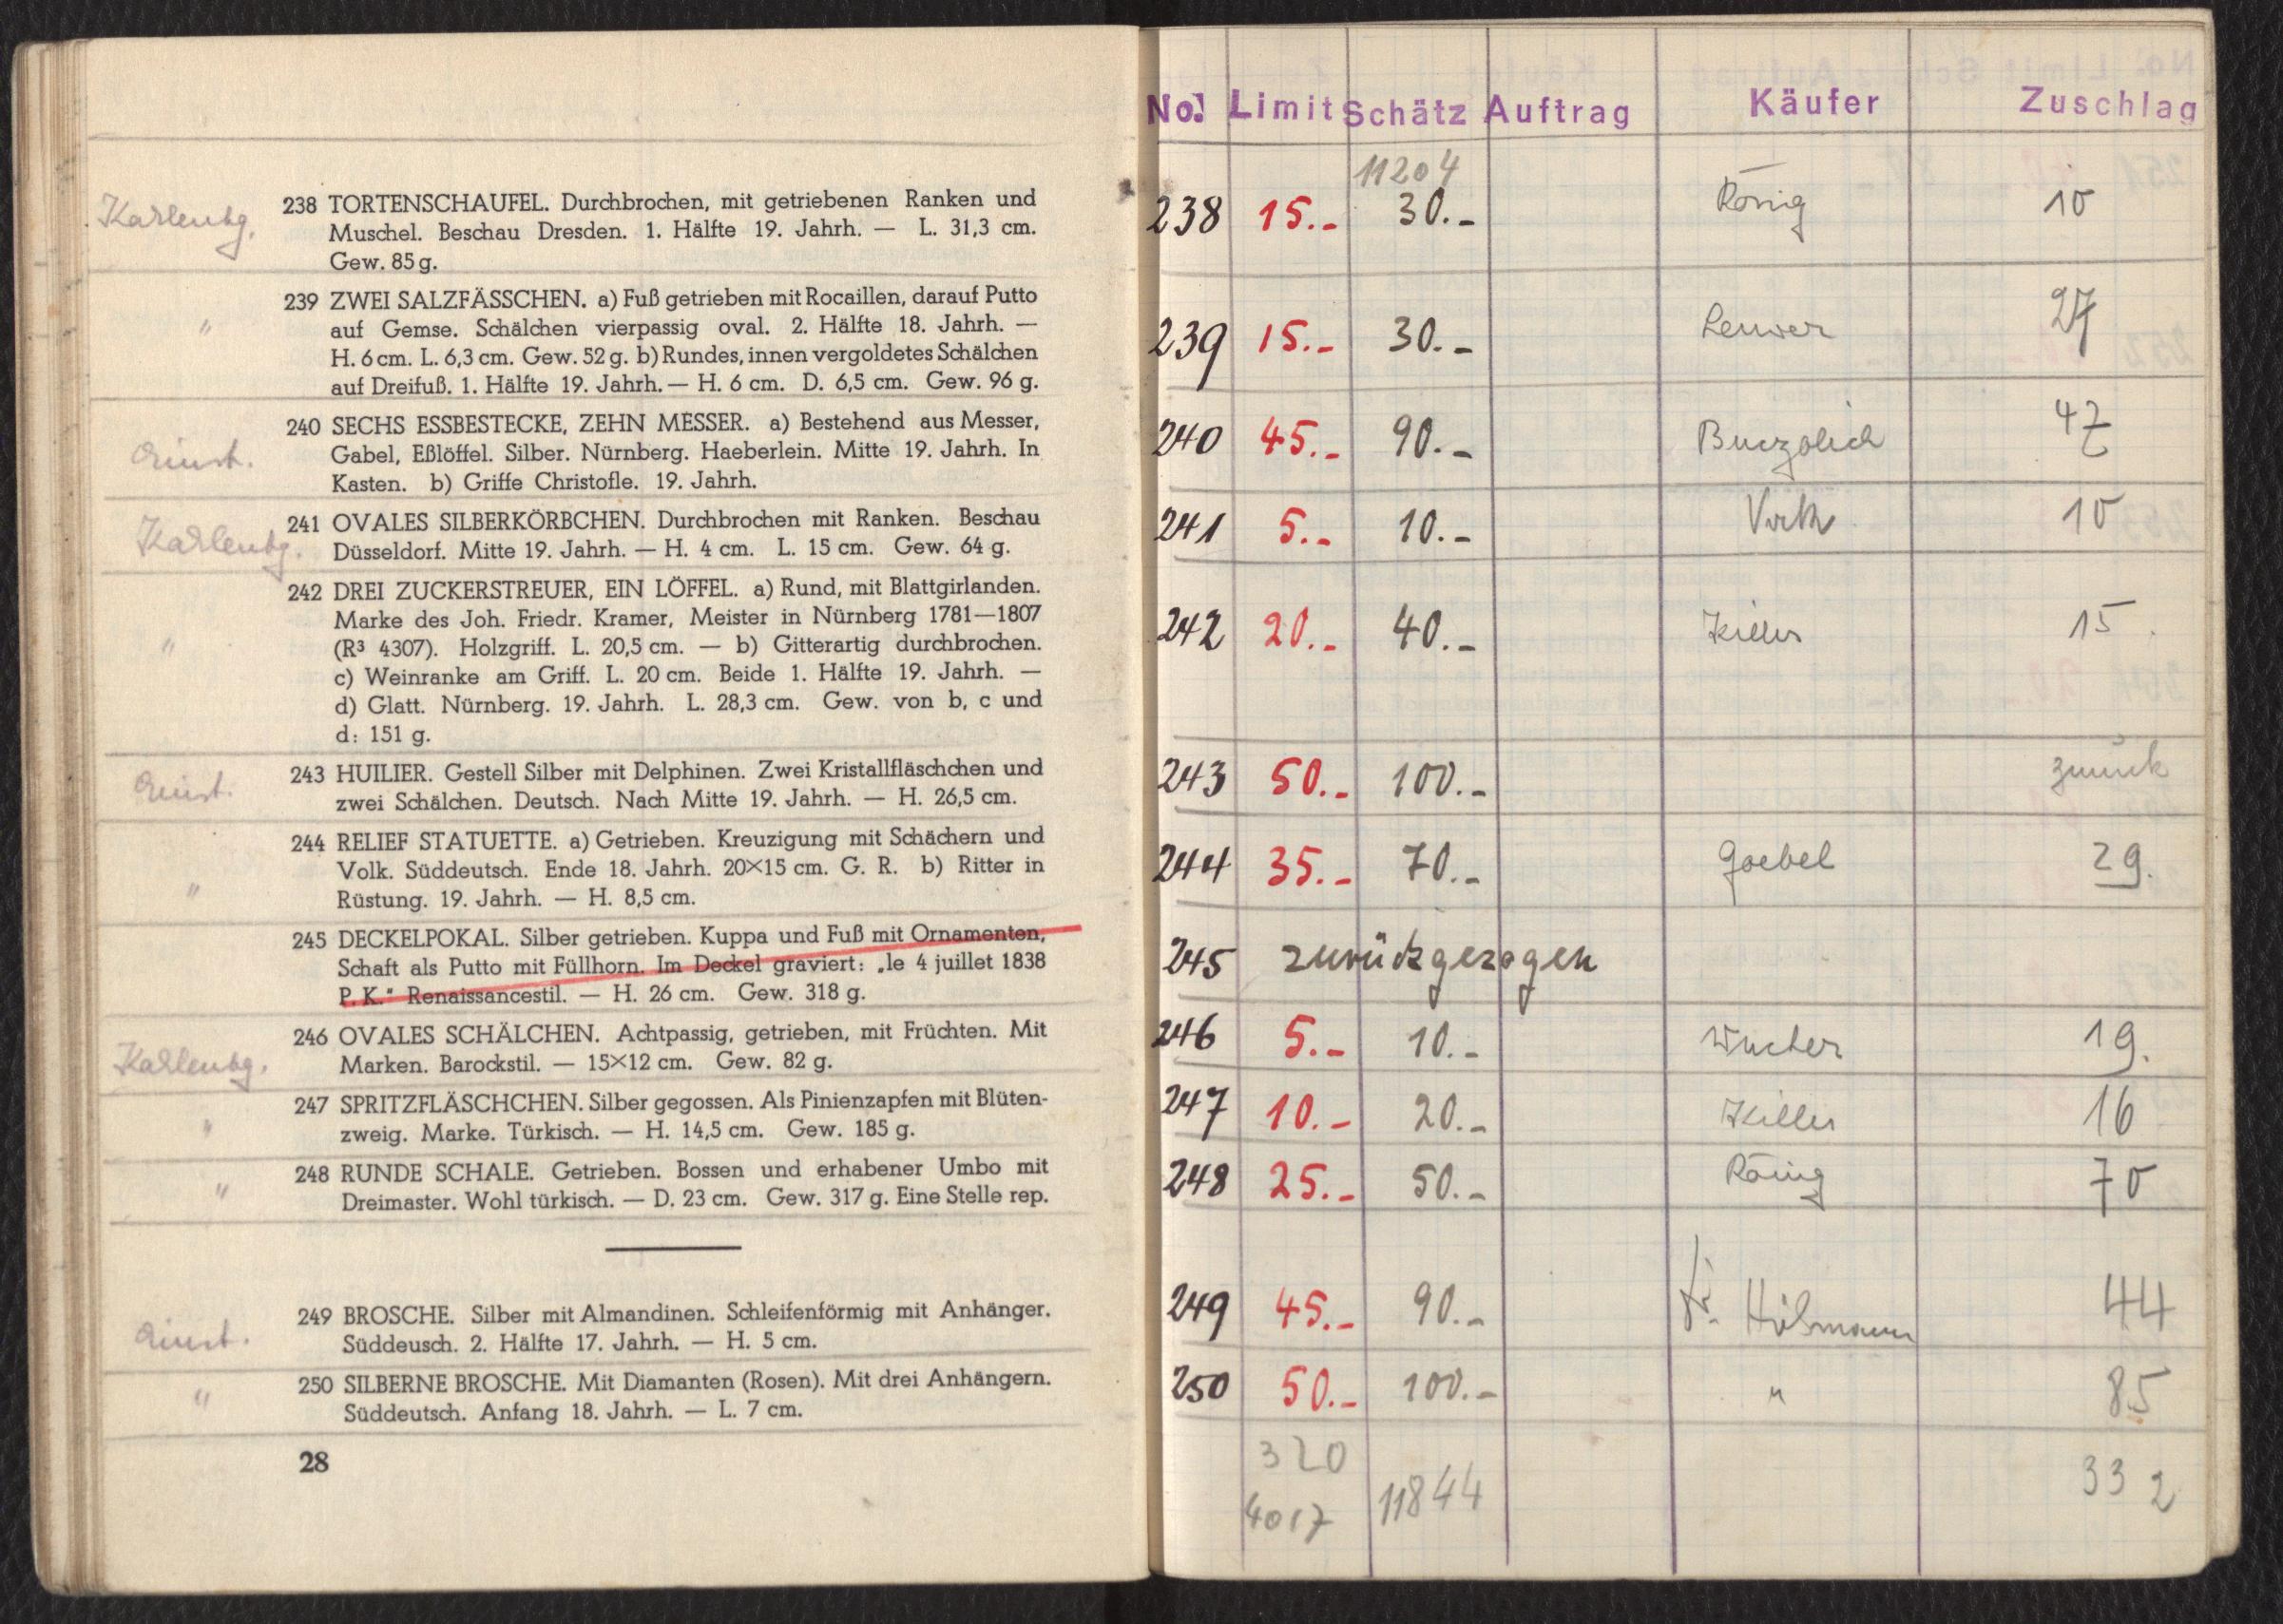 Karlenbg.
238 TORTENSCHAUFEL. Durchbrochen, mit getriebenen Ranken und
Muschel. Beschau Dresden. 1. Hälfte 19. Jahrh. — L. 31,3 cm.
Gew. 85 g.
"
239 ZWEI SALZFÄSSCHEN. a) Fuß getrieben mit Rocaillen, darauf Putto
auf Gemse. Schälchen vierpassig oval. 2. Hälfte 18. Jahrh. —
H. 6 cm. L. 6,3 cm. Gew. 52 g. b) Rundes, innen vergoldetes Schälchen
auf Dreifuß. 1. Hälfte 19. Jahrh. — H. 6 cm. D. 6,5 cm. Gew. 96 g.
240 SECHS ESSBESTECKE, ZEHN MESSER. a) Bestehend aus Messer,
Gabel, Eßlöffel. Silber. Nürnberg. Haeberlein. Mitte 19. Jahrh. In
Kasten. b) Griffe Christofle. 19. Jahrh.
Karlenbg.
241 OVALES SILBERKÖRBCHEN. Durchbrochen mit Ranken. Beschau
Düsseldorf. Mitte 19. Jahrh. — H. 4 cm. L. 15 cm. Gew. 64 g.
"
242 DREI ZUCKERSTREUER, EIN LÖFFEL. a) Rund, mit Blattgirlanden.
Marke des Joh. Friedr. Kramer, Meister in Nürnberg 1781—1807
(R³ 4307). Holzgriff. L. 20,5 cm. — b) Gitterartig durchbrochen.
c) Weinranke am Griff. L. 20 cm. Beide 1. Hälfte 19. Jahrh. —
d) Glatt. Nürnberg. 19. Jahrh. L. 28,3 cm. Gew. von b, c und
d: 151 g.
243 HUILIER. Gestell Silber mit Delphinen. Zwei Kristallfläschchen und
zwei Schälchen. Deutsch. Nach Mitte 19. Jahrh. — H. 26,5 cm.
"
244 RELIEF STATUETTE. a) Getrieben. Kreuzigung mit Schächern und
Volk. Süddeutsch. Ende 18. Jahrh. 20×15 cm. G. R. b) Ritter in
Rüstung. 19. Jahrh. — H. 8,5 cm.
245 DECKELPOKAL. Silber getrieben. Kuppa und Fuß mit Ornamenten,
Schaft als Putto mit Füllhorn. Im Deckel graviert: „le 4 juillet 1838
P. K.“ Renaissancestil. — H. 26 cm. Gew. 318 g.
Karlenbg.
246 OVALES SCHÄLCHEN. Achtpassig, getrieben, mit Früchten. Mit
Marken. Barockstil. — 15×12 cm. Gew. 82 g.
"
247 SPRITZFLÄSCHCHEN. Silber gegossen. Als Pinienzapfen mit Blüten-
zweig. Marke. Türkisch. — H. 14,5 cm. Gew. 185 g.
"
248 RUNDE SCHALE. Getrieben. Bossen und erhabener Umbo mit
Dreimaster. Wohl türkisch. — D. 23 cm. Gew. 317 g. Eine Stelle rep.
249 BROSCHE. Silber mit Almandinen. Schleifenförmig mit Anhänger.
Süddeusch. 2. Hälfte 17. Jahrh. — H. 5 cm.
"
250 SILBERNE BROSCHE. Mit Diamanten (Rosen). Mit drei Anhängern.
Süddeutsch. Anfang 18. Jahrh. — L. 7 cm.
28
No. Limit Schätz Auftrag Käufer Zuschlag
11204
238 15.- 30.- König 10
239 15.- 30.- 27
240 45.- 90.- 47
241 5.- 10.- 10
242 20.- 40.- Killer 15
243 50.- 100.- zurück
244 35.- 70.- Goebel 29.
245 zurückgezogen
246 5.- 10.- Wucher 19.
247 10.- 20.- Killer 16
248 25.- 50.- König 70
249 45.- 90.- 44
250 50.- 100.- " 85
320 332
4017 11844